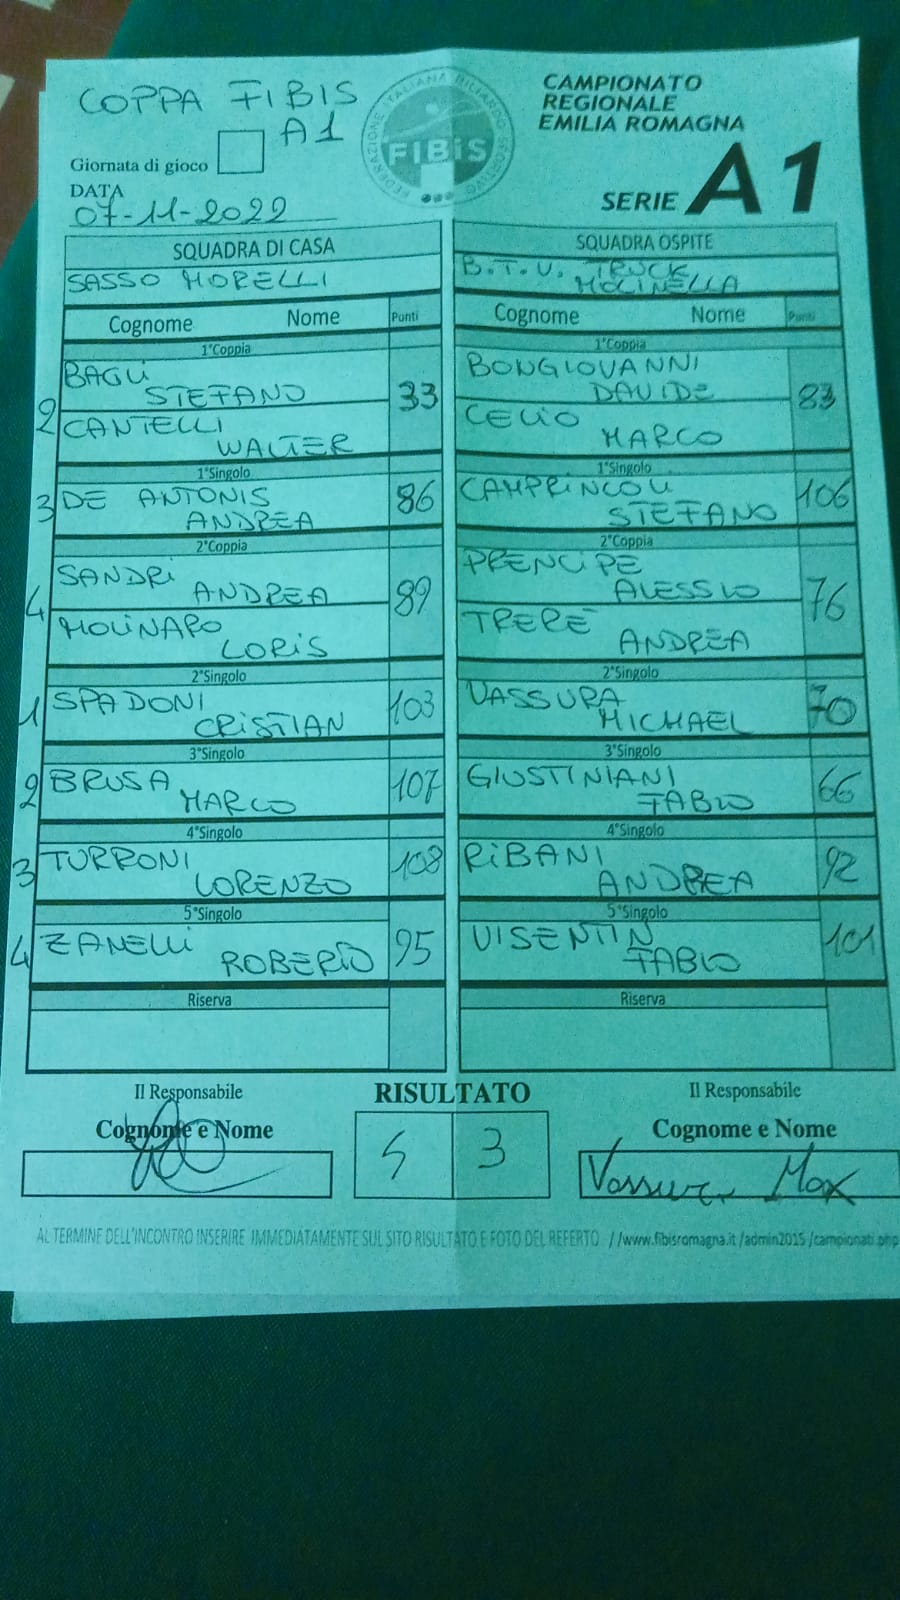 COPPA FIBIS
A1
Giornata di gioco
DATA
07-11-2022
FEDERAZIONE ITALIANA BILIARDO SPORTIVO
FIBiS
CAMPIONATO
REGIONALE
EMILIA ROMAGNA
SERIE A1
SQUADRA DI CASA
SASSO MORELLI
Cognome Nome Punti
1°Coppia
2 BAGLI
STEFANO
33
CANTELLI
WALTER
1°Singolo
3 DE ANTONIS
ANDREA
86
2°Coppia
4 SANDRI
ANDREA
89
MOLINARO
LORIS
2°Singolo
1 SPADONI
CRISTIAN
103
3°Singolo
2 BRUSA
MARCO
107
4°Singolo
3 TURRONI
LORENZO
108
5°Singolo
4 ZANELLI
ROBERTO
95
Riserva
SQUADRA OSPITE
B.T.U. TRUCK
MOLINELLA
Cognome Nome Punti
1°Coppia
BONGIOVANNI
DAVIDE
83
CELIO
MARCO
1°Singolo
CAMPRINCOLI
STEFANO
106
2°Coppia
PRENCIPE
ALESSIO
76
TRERE'
ANDREA
2°Singolo
VASSURA
MICHAEL
70
3°Singolo
GIUSTINIANI
FABIO
66
4°Singolo
RIBANI
ANDREA
92
5°Singolo
VISENTIN
FABIO
101
Riserva
Il Responsabile
Cognome e Nome
RISULTATO
4 3
Il Responsabile
Cognome e Nome
Vassura Max
AL TERMINE DELL'INCONTRO INSERIRE IMMEDIATAMENTE SUL SITO RISULTATO E FOTO DEL REFERTO //www.fibisromagna.it /admin2015 /campionati.php